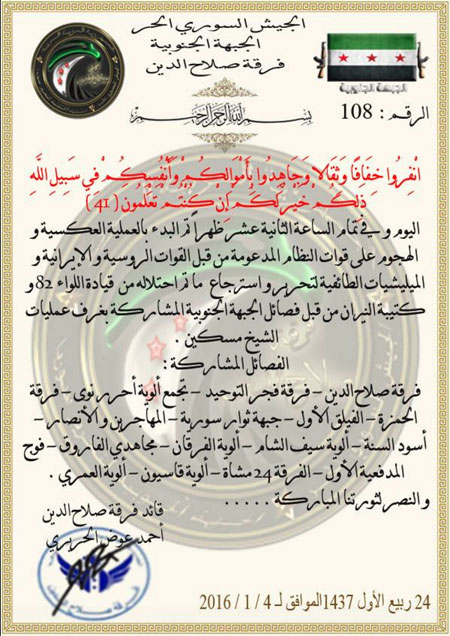 الجيش السوري الحر
الجبهة الجنوبية
فرقة صلاح الدين
الجبهة الجنوبية
بسم الله الرحمن الرحيم
الرقم : 108
انْفِرُوا خِفَافًا وَثِقَالًا وَجَاهِدُوا بِأَمْوَالِكُمْ وَأَنْفُسِكُمْ فِي سَبِيلِ اللَّهِ
ذَلِكُمْ خَيْرٌ لَكُمْ إِنْ كُنْتُمْ تَعْلَمُونَ ( 41 )
اليوم و في تمام الساعة الثانية عشر ظهراً تم البدء بالعملية العكسية و
الهجوم على قوات النظام المدعومة من قبل القوات الروسية و الايرانية و
الميليشيات الطائفية لتحرير و استرجاع ما تم احتلاله من قيادة اللواء 82 و
كتيبة النيران من قبل فصائل الجبهة الجنوبية المشاركة بغرف عمليات
الشيخ مسكين .
الفصائل المشاركة :
فرقة صلاح الدين – فرقة فجر التوحيد – تجمع ألوية أحرر نوى – فرقة
الحمزة – الفيلق الأول – جبهة ثوار سورية – المهاجرين و الأنصار –
أسود السنة – ألوية سيف الشام – ألوية الفرقان – مجاهدي الفاروق – فوج
المدفعية الأول – الفرقة 24 مشاة – ألوية قاسيون – ألوية العمري .
و النصر لثورتنا المباركة . . . . .
قائد فرقة صلاح الدين
أحمد عوض الحريري
24 ربيع الأول 1437الموافق لـ 4 / 1 / 2016